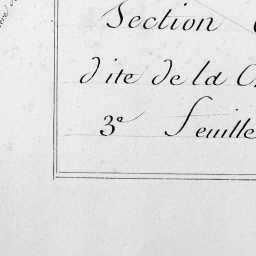 Section
dite de la
3e Feuille